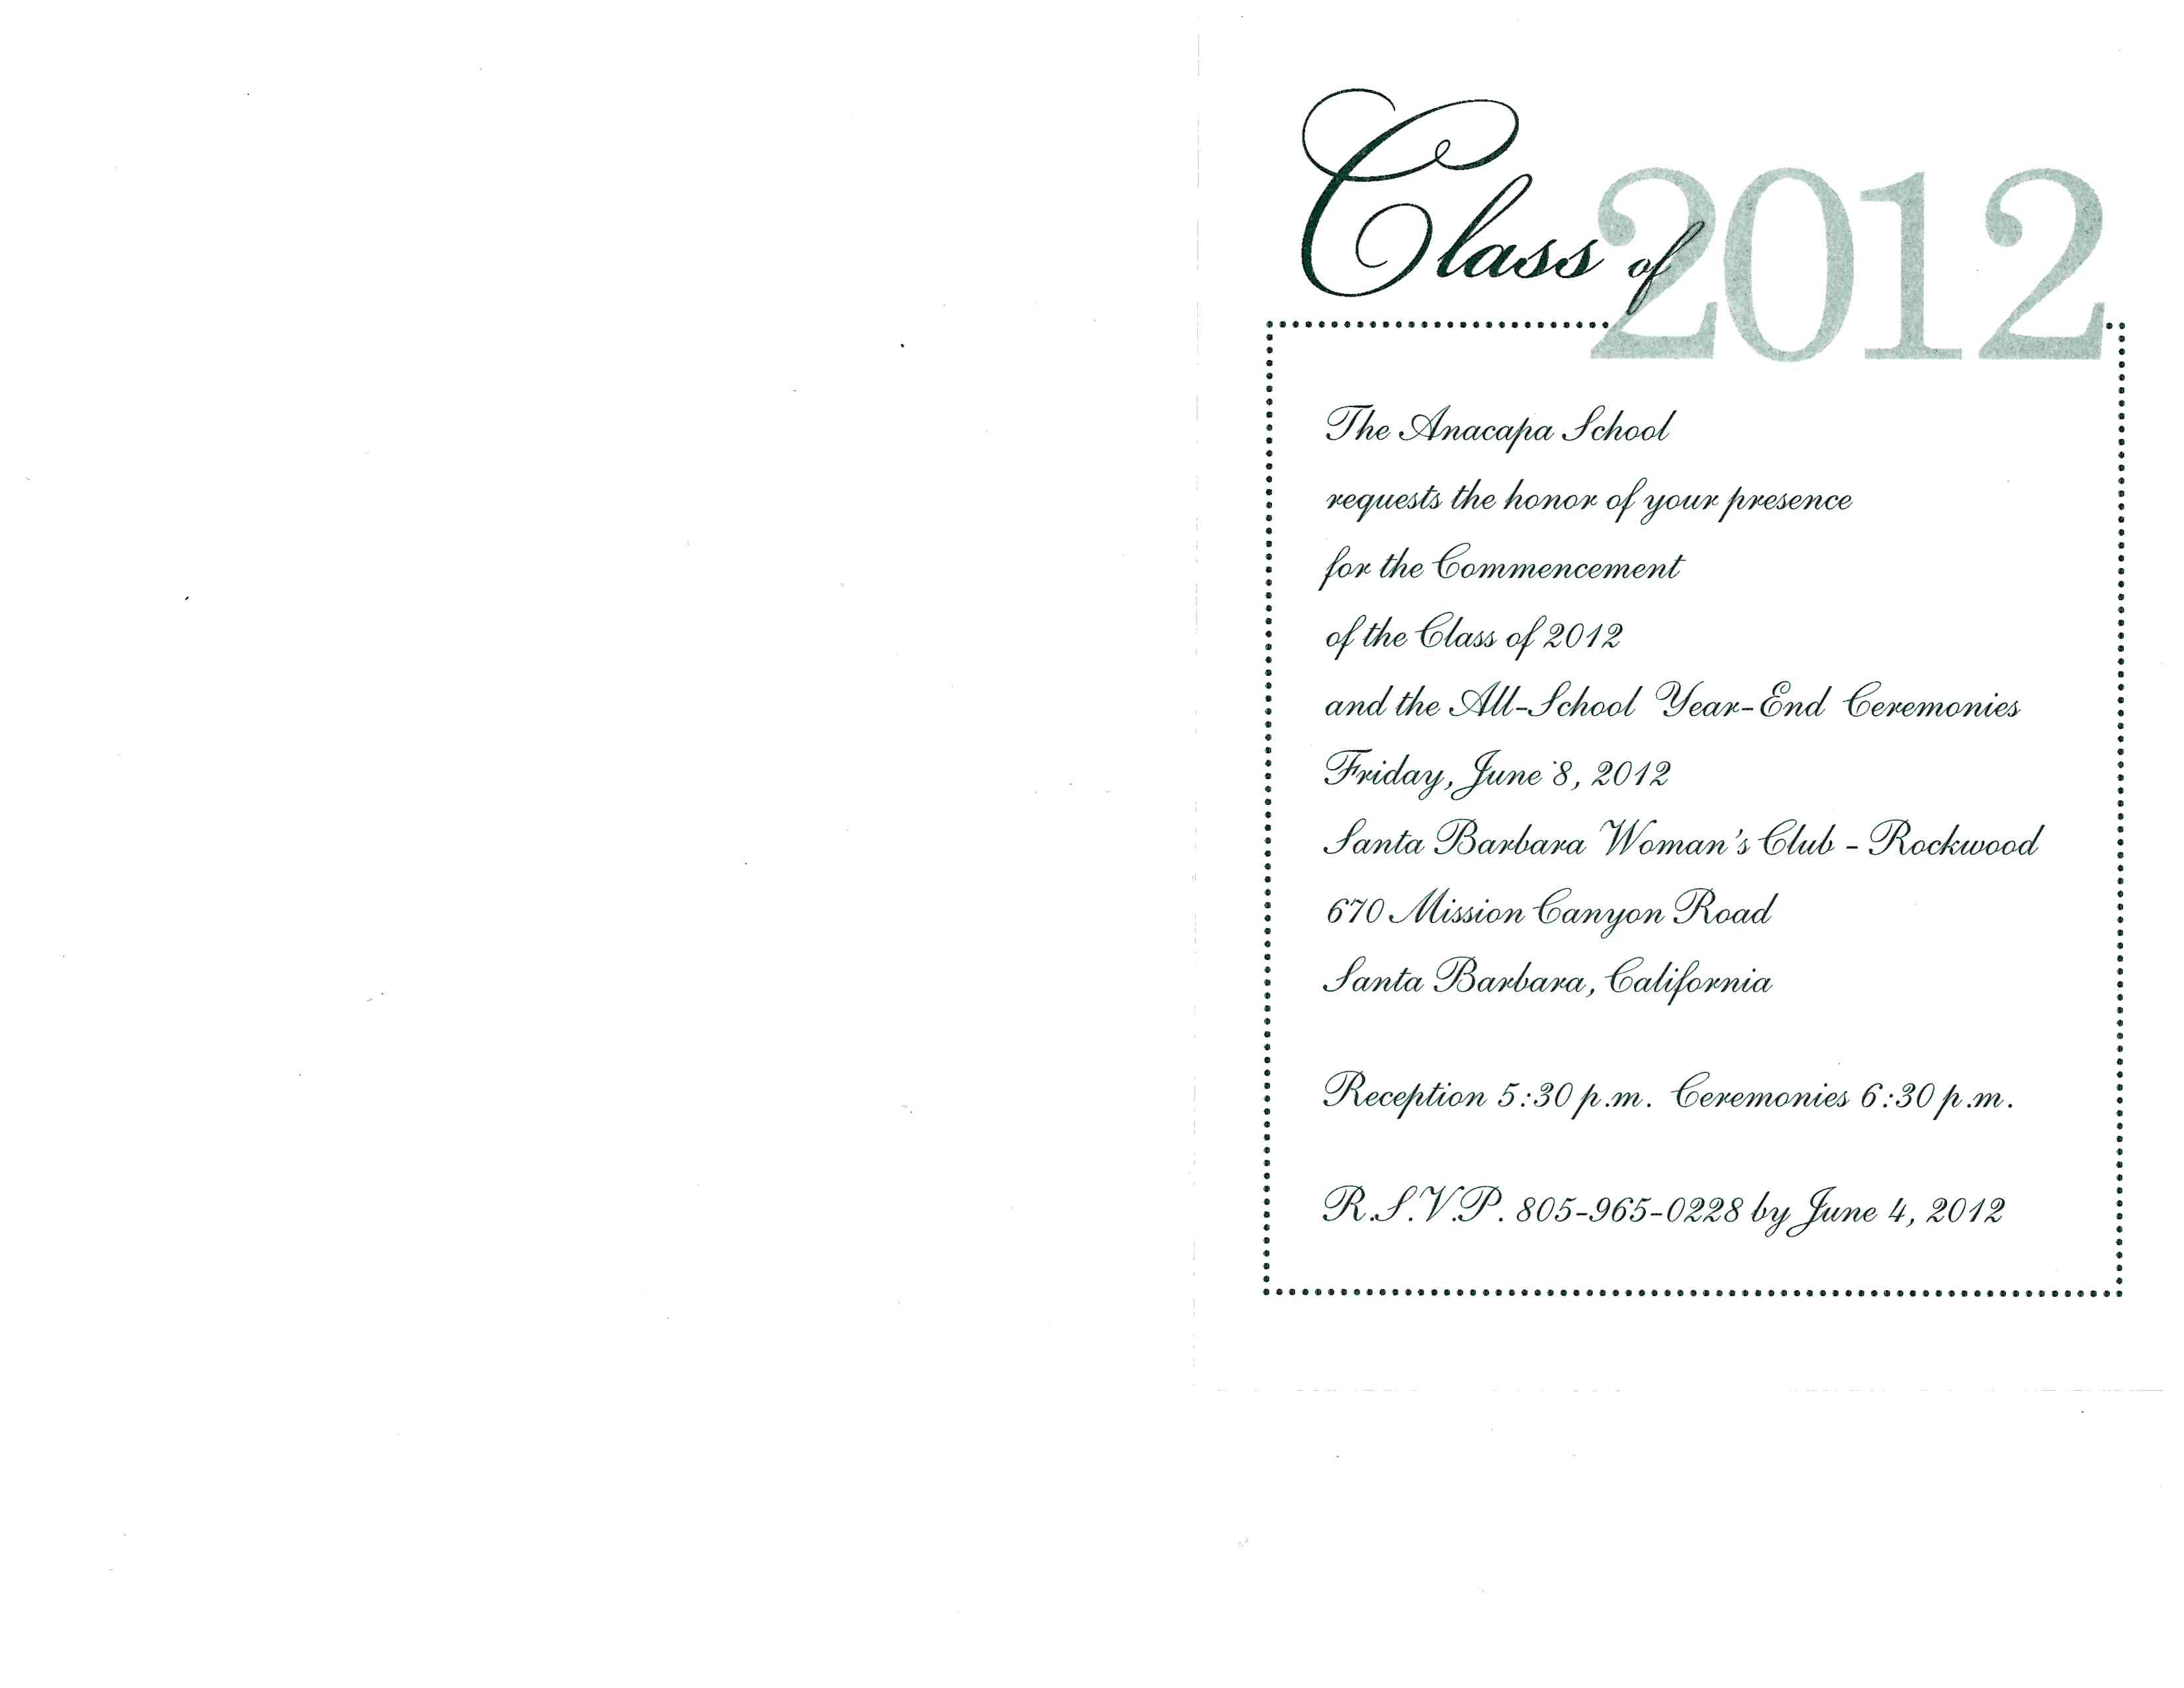 Class of 2012
The Anacapa School
requests the honor of your presence
for the Commencement
of the Class of 2012
and the All-School Year-End Ceremonies
Friday, June 8, 2012
Santa Barbara Woman's Club - Rockwood
670 Mission Canyon Road
Santa Barbara, California
Reception 5:30 p.m. Ceremonies 6:30 p.m.
R.S.V.P. 805-965-0228 by June 4, 2012